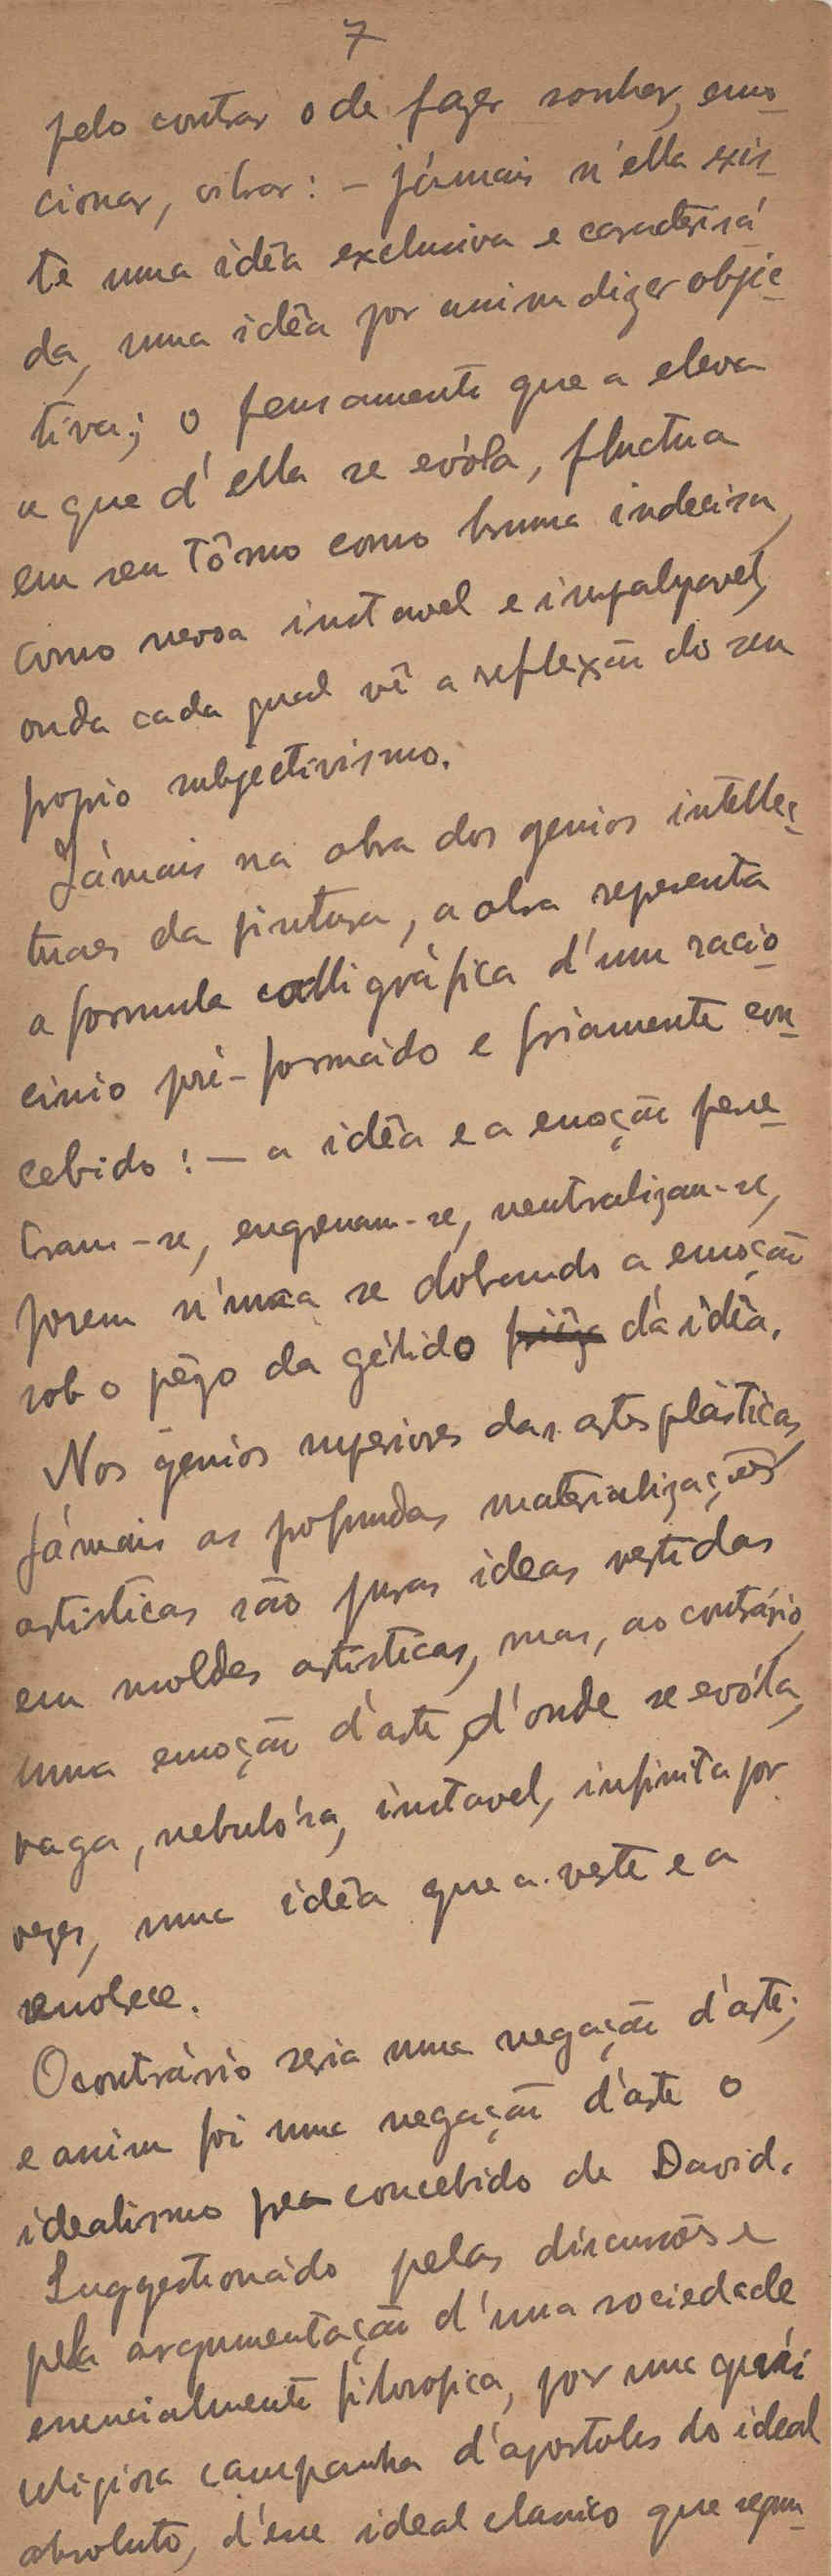 7
pelo contrar o de fazer sonhar, emo-
cionar, vibrar: – jámais n'ella exis-
te uma idêa exclusiva e caracterisá
da, uma idêa por assim dizer obje-
tiva; o pensamento que a eleva
e que d'ella se evóla, fluctua
em seu tôrno como bruma indecisa,
como nevoa instavel e impalpavel,
onda cada qual vê a reflexão do seu
propio subjectivismo.
Jámais na obra dos genios intellec-
tuaes da pintura, a obra representa
a formula calligráfica d'um racio-
cinio pré-formádo e friamente con-
cebido: – a idêa e a emoção pene-
tram-se, engrenam-se, neutralizam-se,
porem n'unca se dobrando a emoção
sob o pêzo da gélido da idêa.
Nos genios superiores das artes plásticas,
Jámais as profundas materializações
artisticas são puras ideas vestidas
em moldes artisticas, mas, ao contrário,
uma emoção d'arte, d'onde se evóla,
vaga, nebulósa, instavel, infinita por
vezes, uma idêa que a veste e a
enobrece.
O contrário seria uma negação d'arte;
e assim foi uma negação d'arte o
idealismo pre concebido de David.
Suggestionádo pelas discussões e
pela argumentação d'uma sociedade
essencialmente filosofica, por uma quási
religiosa campanha d'apostolos do ideal
absoluto, d'esse ideal classico que repou-